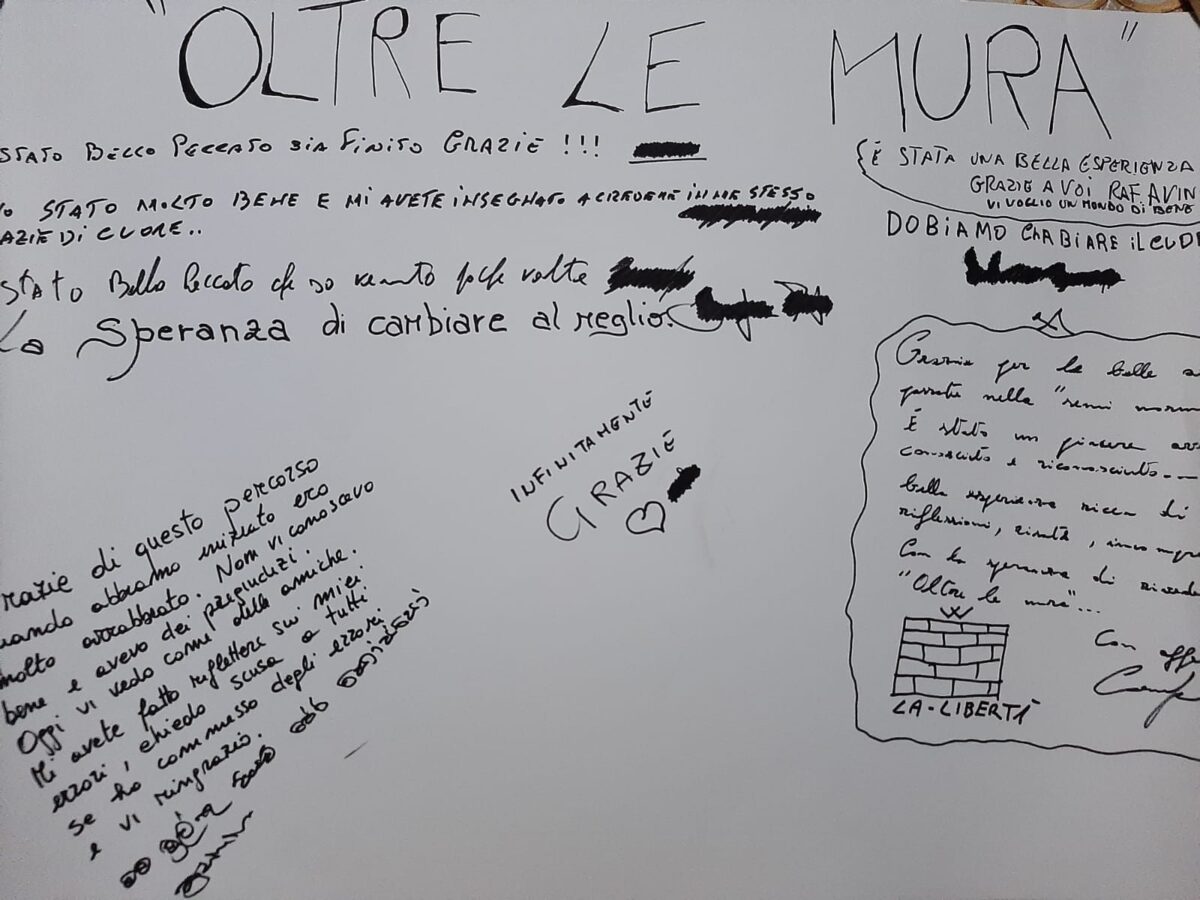 "OLTRE LE MURA"
STATO BELLO PECCATO SIA FINITO GRAZIE !!!
O STATO MOLTO BENE E MI AVETE INSEGNATO A CREDERE IN ME STESSO
AZIE DI CUORE..
STATO Bello Peccato che so venuto poche volte
La Speranza di cambiare al meglio.
È STATA UNA BELLA ESPERIENZA
GRAZIE A VOI RAF. AVIN
VI VOGLIO UN MONDO DI BENE
DOBIAMO CHABIARE il CUO
Grazie per le belle
passate nella "semi
È stato un piacere
conosciuto e riconosciuto...
bella esperienza ricca di
riflessioni,
Con la speranza di
"Oltre le mura"...
LA-LIBERTÀ
Con aff
INFINITAMENTE
GRAZIE
razie di questo percorso
uando abbiamo iniziato ero
molto arrabbiato. Non vi conoscevo
bene e avevo dei pregiudizi.
Oggi vi vedo come delle amiche.
Mi avete fatto riflettere sui miei
errori, chiedo scusa a tutti
se ho commesso degli errori
e vi ringrazio.